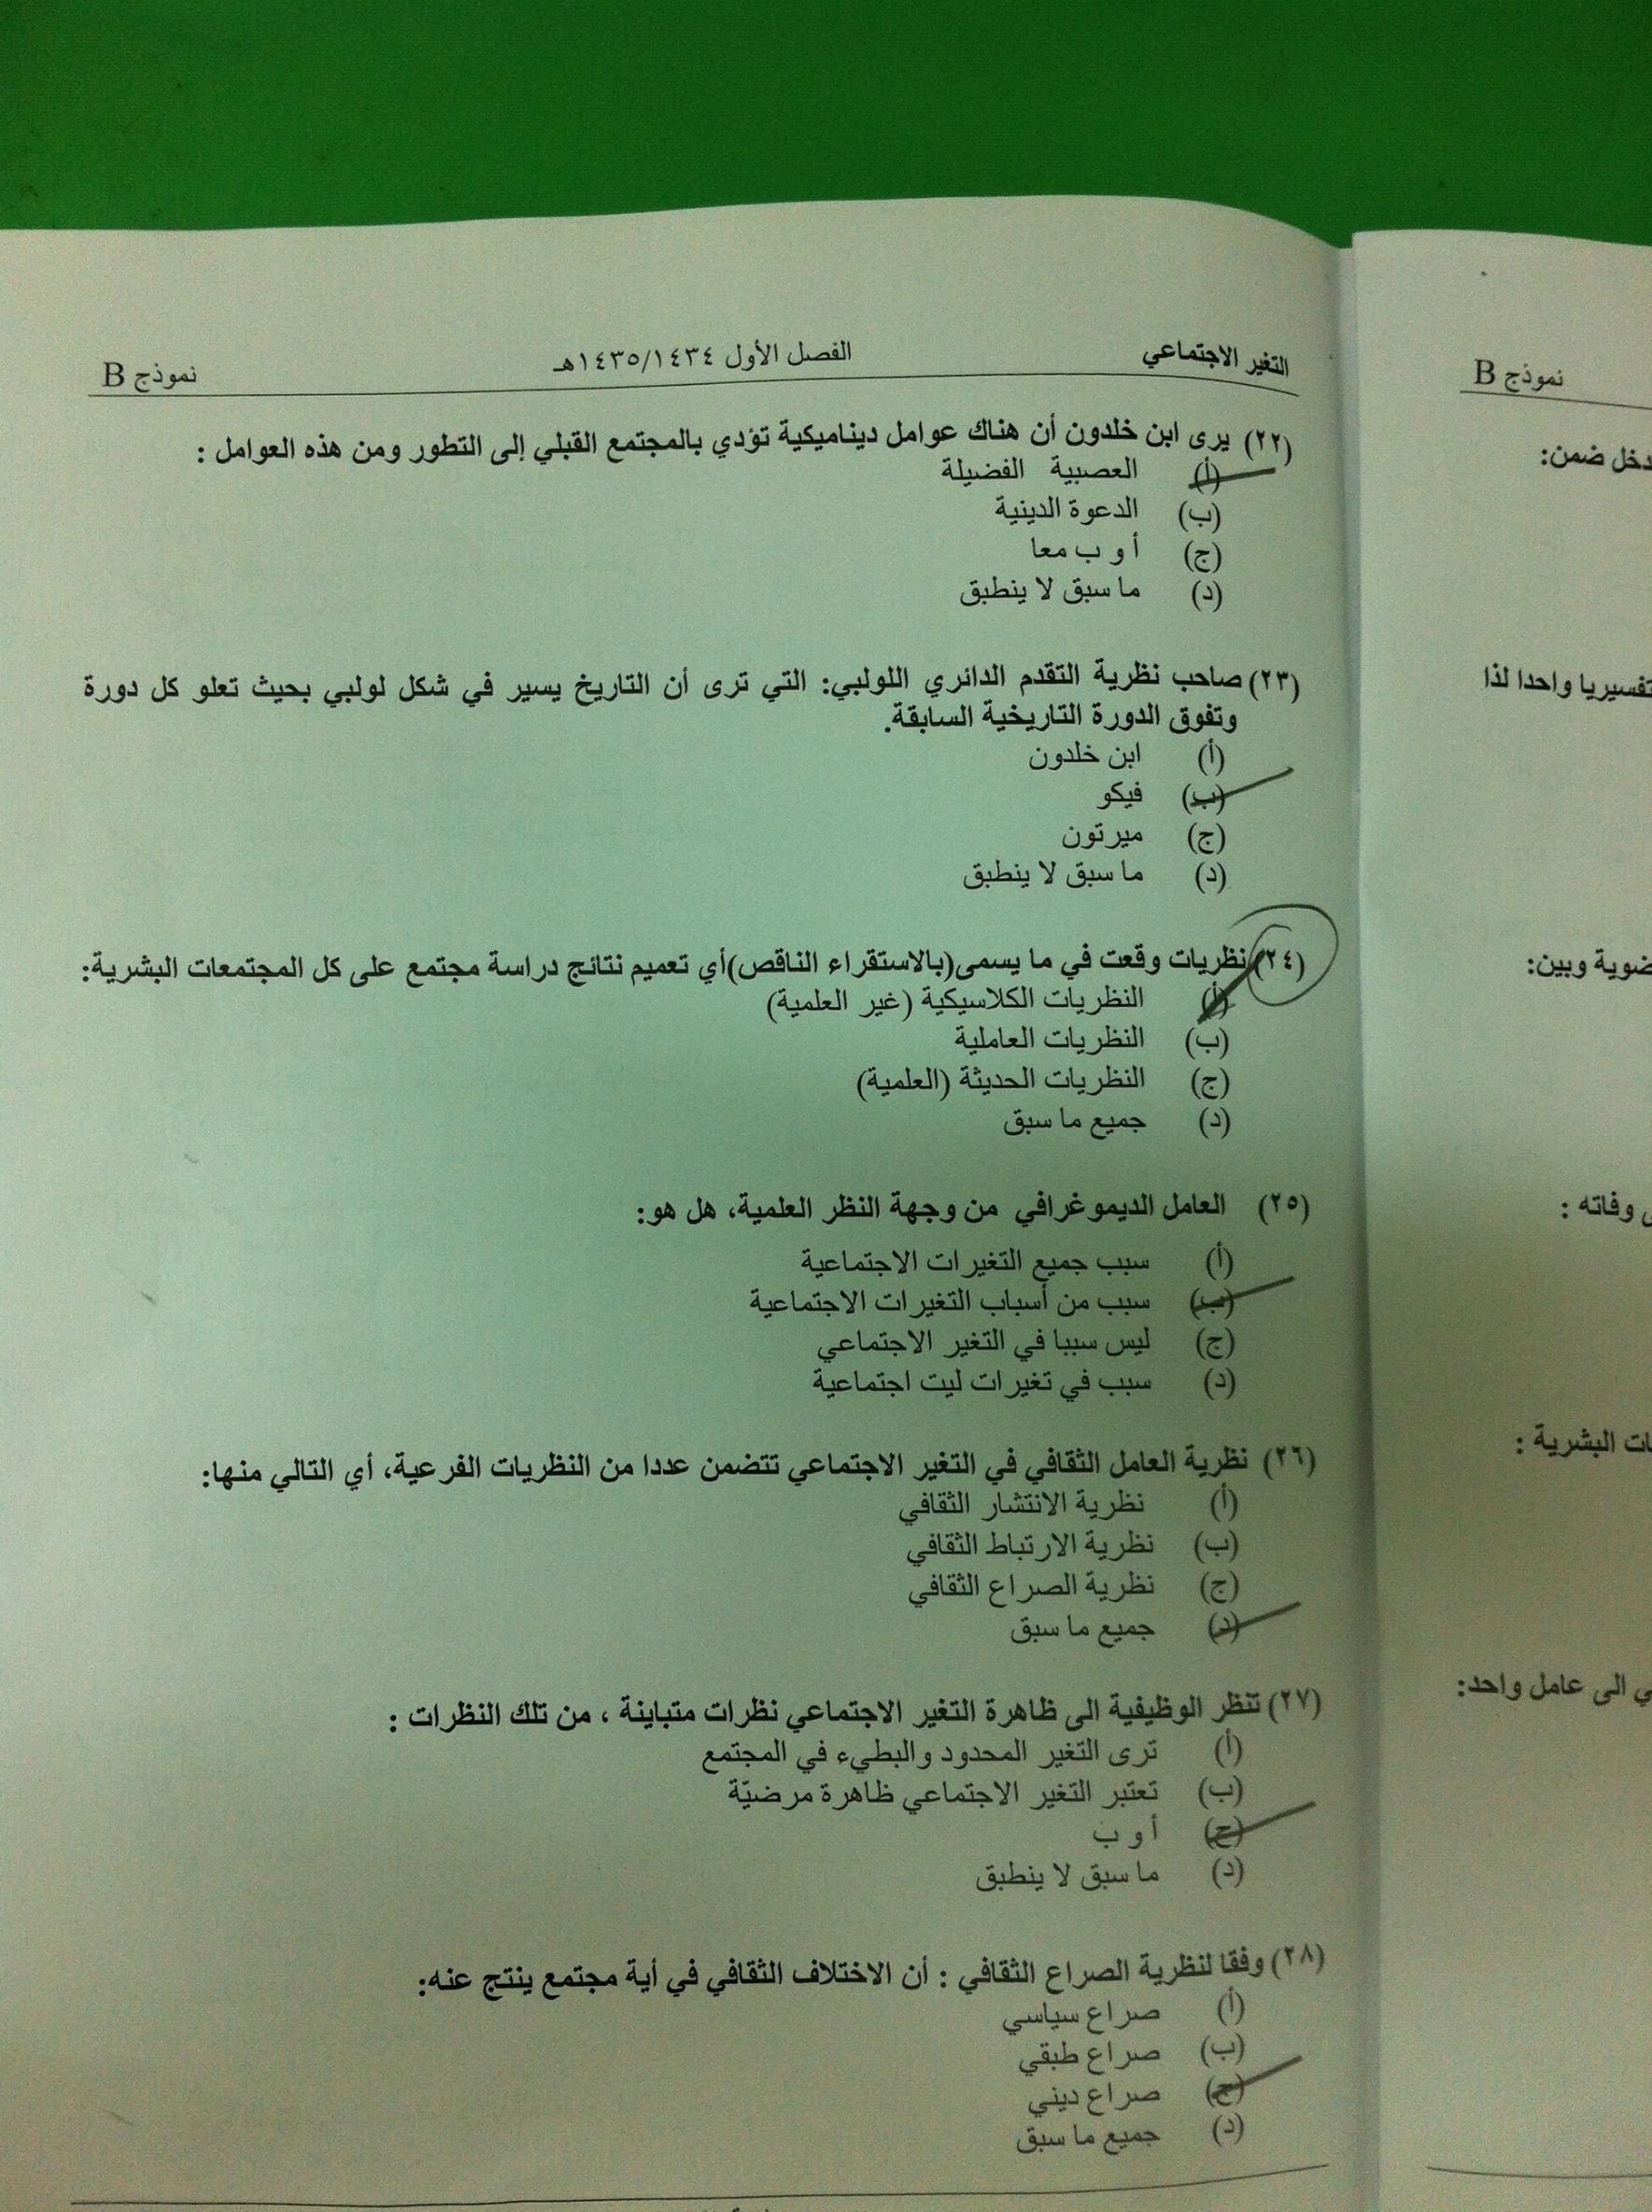 التغير الاجتماعي
الفصل الأول ١٤٣٥/١٤٣٤هـ
نموذج B
(٢٢) يرى ابن خلدون أن هناك عوامل ديناميكية تؤدي بالمجتمع القبلي إلى التطور ومن هذه العوامل :
(أ) العصبية الفضيلة
(ب) الدعوة الدينية
(ج) أ و ب معا
(د) ما سبق لا ينطبق
(٢٣) صاحب نظرية التقدم الدائري اللولبي: التي ترى أن التاريخ يسير في شكل لولبي بحيث تعلو كل دورة
وتفوق الدورة التاريخية السابقة.
(أ) ابن خلدون
(ب) فيكو
(ج) ميرتون
(د) ما سبق لا ينطبق
(٢٤) نظريات وقعت في ما يسمى(بالاستقراء الناقص)أي تعميم نتائج دراسة مجتمع على كل المجتمعات البشرية:
(أ) النظريات الكلاسيكية (غير العلمية)
(ب) النظريات العاملية
(ج) النظريات الحديثة (العلمية)
(د) جميع ما سبق
(٢٥) العامل الديموغرافي من وجهة النظر العلمية، هل هو:
(أ) سبب جميع التغيرات الاجتماعية
(ب) سبب من أسباب التغيرات الاجتماعية
(ج) ليس سببا في التغير الاجتماعي
(د) سبب في تغيرات ليت اجتماعية
(٢٦) نظرية العامل الثقافي في التغير الاجتماعي تتضمن عددا من النظريات الفرعية، أي التالي منها:
(أ) نظرية الانتشار الثقافي
(ب) نظرية الارتباط الثقافي
(ج) نظرية الصراع الثقافي
(د) جميع ما سبق
(٢٧) تنظر الوظيفية الى ظاهرة التغير الاجتماعي نظرات متباينة ، من تلك النظرات :
(أ) ترى التغير المحدود والبطيء في المجتمع
(ب) تعتبر التغير الاجتماعي ظاهرة مرضيّة
(ج) أ و ب
(د) ما سبق لا ينطبق
(٢٨) وفقا لنظرية الصراع الثقافي : أن الاختلاف الثقافي في أية مجتمع ينتج عنه:
(أ) صراع سياسي
(ب) صراع طبقي
(ج) صراع ديني
(د) جميع ما سبق
نموذج B
ضمن:
واحدا لذا
وبين:
وفاته :
البشرية :
الى عامل واحد: